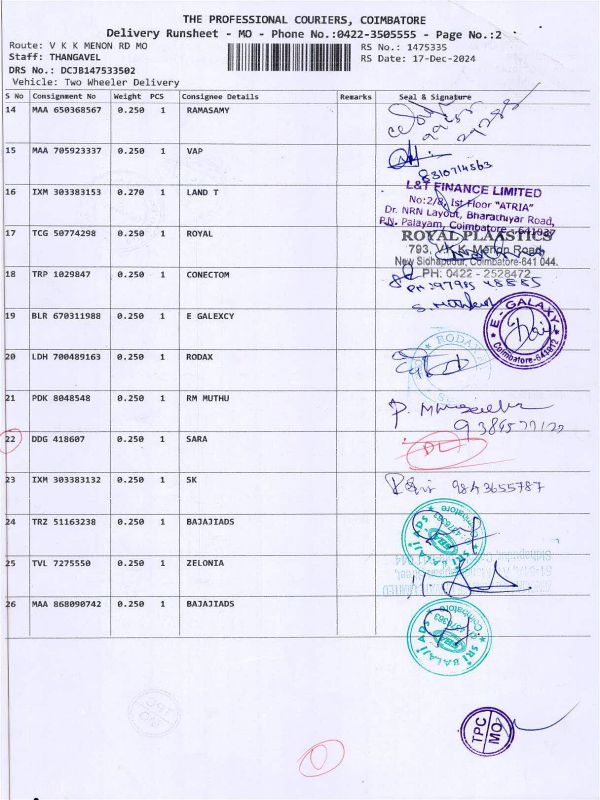 THE PROFESSIONAL COURIERS, COIMBATORE
Delivery Runsheet - MO - Phone No.:0422-3505555 - Page No.:2
Route: V K K MENON RD MO
RS No.: 1475335
Staff: THANGAVEL
RS Date: 17-Dec-2024
DRS No.: DCJB147533502
Vehicle: Two Wheeler Delivery
S No Consignment No Weight PCS Consignee Details Remarks Seal & Signature
14 MAA 650368567 0.250 1 RAMASAMY
15 MAA 705923337 0.250 1 VAP
8310714563
16 IXM 303383153 0.270 1 LAND T
L&T FINANCE LIMITED
No:2/8, 1st Floor "ATRIA"
Dr. NRN Layout, Bharathiyar Road,
P.N. Palayam, Coimbatore - 641037
17 TCG 50774298 0.250 1 ROYAL
ROYAL PLAASTICS
793, V.K.K. Menon Road,
New Sidhapudur, Coimbatore-641 044.
PH: 0422 - 2528472
18 TRP 1029847 0.250 1 CONECTOM
19 BLR 670311988 0.250 1 E GALEXCY
E-GALAXY
Coimbatore-641012
20 LDH 700489163 0.250 1 RODAX
21 PDK 8048548 0.250 1 RM MUTHU
22 DDG 418607 0.250 1 SARA
DL
23 IXM 303383132 0.250 1 SK
9843655787
24 TRZ 51163238 0.250 1 BAJAJIADS
SRI BALAJI ADS
Coimbatore
4376363
25 TVL 7275550 0.250 1 ZELONIA
26 MAA 868090742 0.250 1 BAJAJIADS
SRI BALAJI ADS
Coimbatore
4376363
TPC
MO